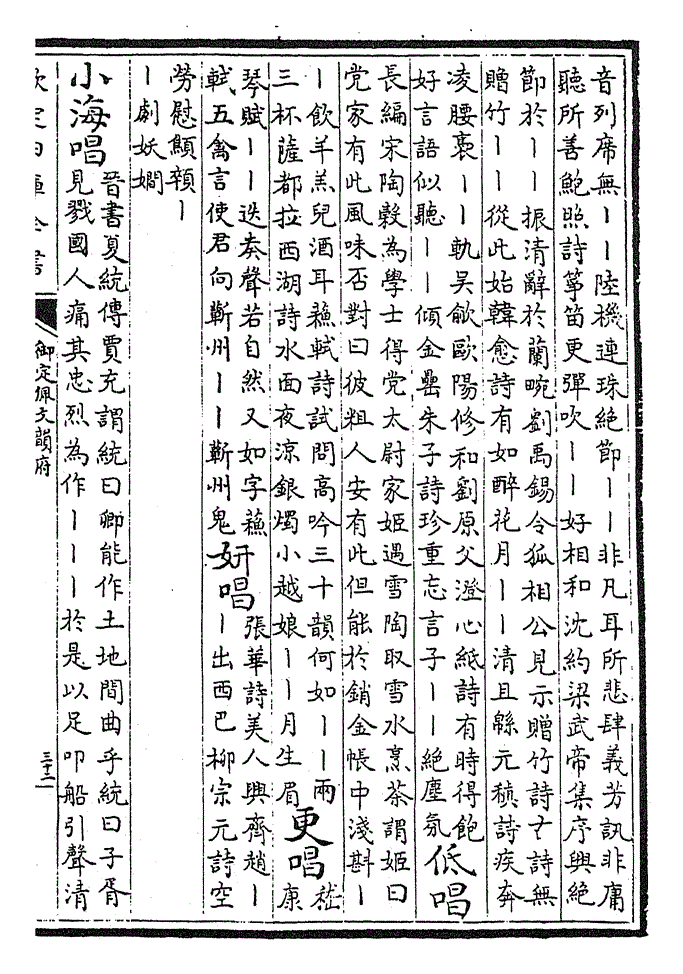 音列席無丨丨陸機連珠絶節丨丨非凡耳所悲肆義芳訊非庸
聽所善鮑照詩箏笛更彈吹丨丨好相和沈約梁武帝集序興絶
節於丨丨振清辭於蘭畹劉禹錫令狐相公見示贈竹詩詩無
贈竹丨丨從此始韓愈詩有如醉花月丨丨清且緜元稹詩疾奔
凌腰褭丨丨軌吴歈歐陽修和劉原父澄心紙詩有時得飽
好言語似聽丨丨傾金罍朱子詩珍重忘言子丨丨絶塵氛
低唱
長編宋陶穀為學士得党太尉家姬遇雪陶取雪水烹茶謂姬曰
党家有此風味否對曰彼粗人安有此但能於銷金帳中淺斟丨
丨飲羊羔兒酒耳蘇軾詩試問高吟三十韻何如丨丨兩
三杯薩都拉西湖詩水面夜涼銀燭小越娘丨丨月生眉
更唱
嵇
康
琴賦丨丨迭奏聲若自然又如字蘇
軾五禽言使君向蘄州丨丨蘄州鬼
妍唱
張華詩美人興齊趙丨
丨出西巴柳宗元詩空
勞慰顦顇丨
丨劇妖嫺
小海唱
晉書夏統傳賈充謂統曰卿能作土地間曲乎統曰子胥
見戮國人痛其忠烈為作丨丨丨於是以足叩船引聲清
欽定四庫全書
御定佩文韻府
三十二